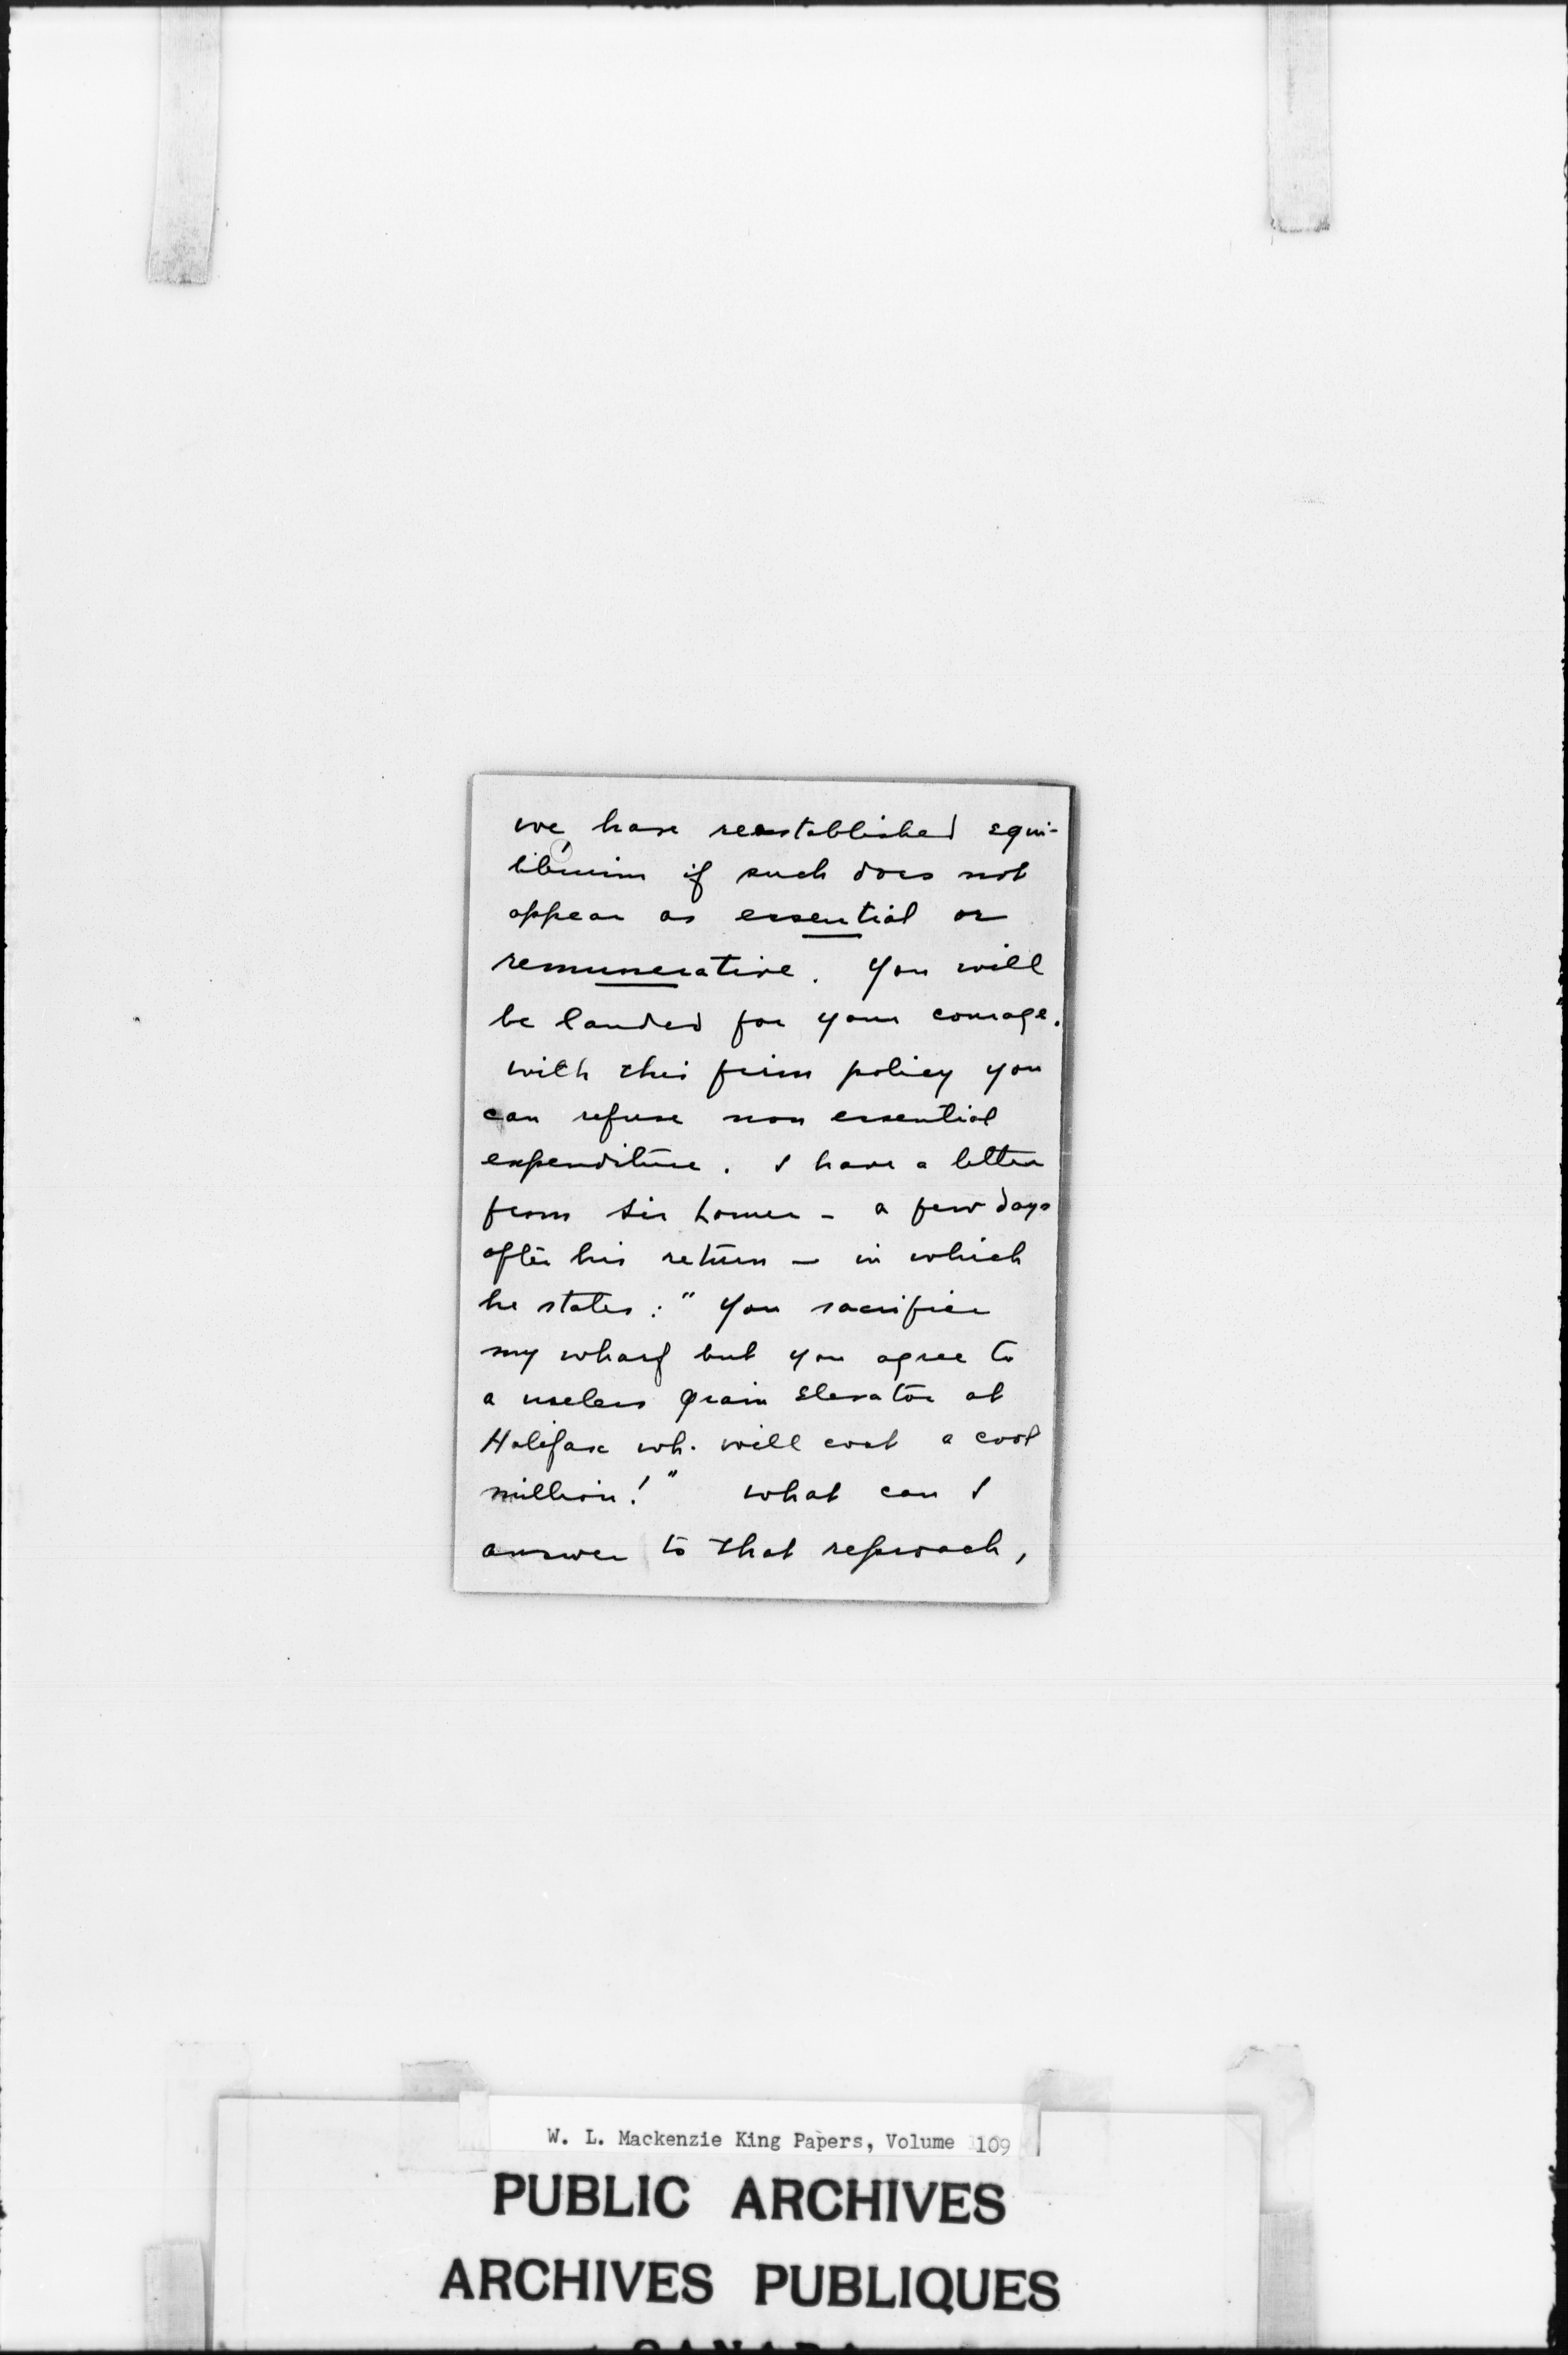 we have reestablished equi-
librium if such does not
appear as essential or
remunerative. You will
be lauded for your courage.
With this firm policy you
can refuse non essential
expenditure. I have a letter
from Sir Lomer - a few days
after his return - in which
he states: "You sacrifice
my wharf but you agree to
a useless grain elevator at
Halifax wh. will cost a cool
million!" What can I
answer to that reproach,
W. L. Mackenzie King Papers, Volume 109
PUBLIC ARCHIVES
ARCHIVES PUBLIQUES
CANADA